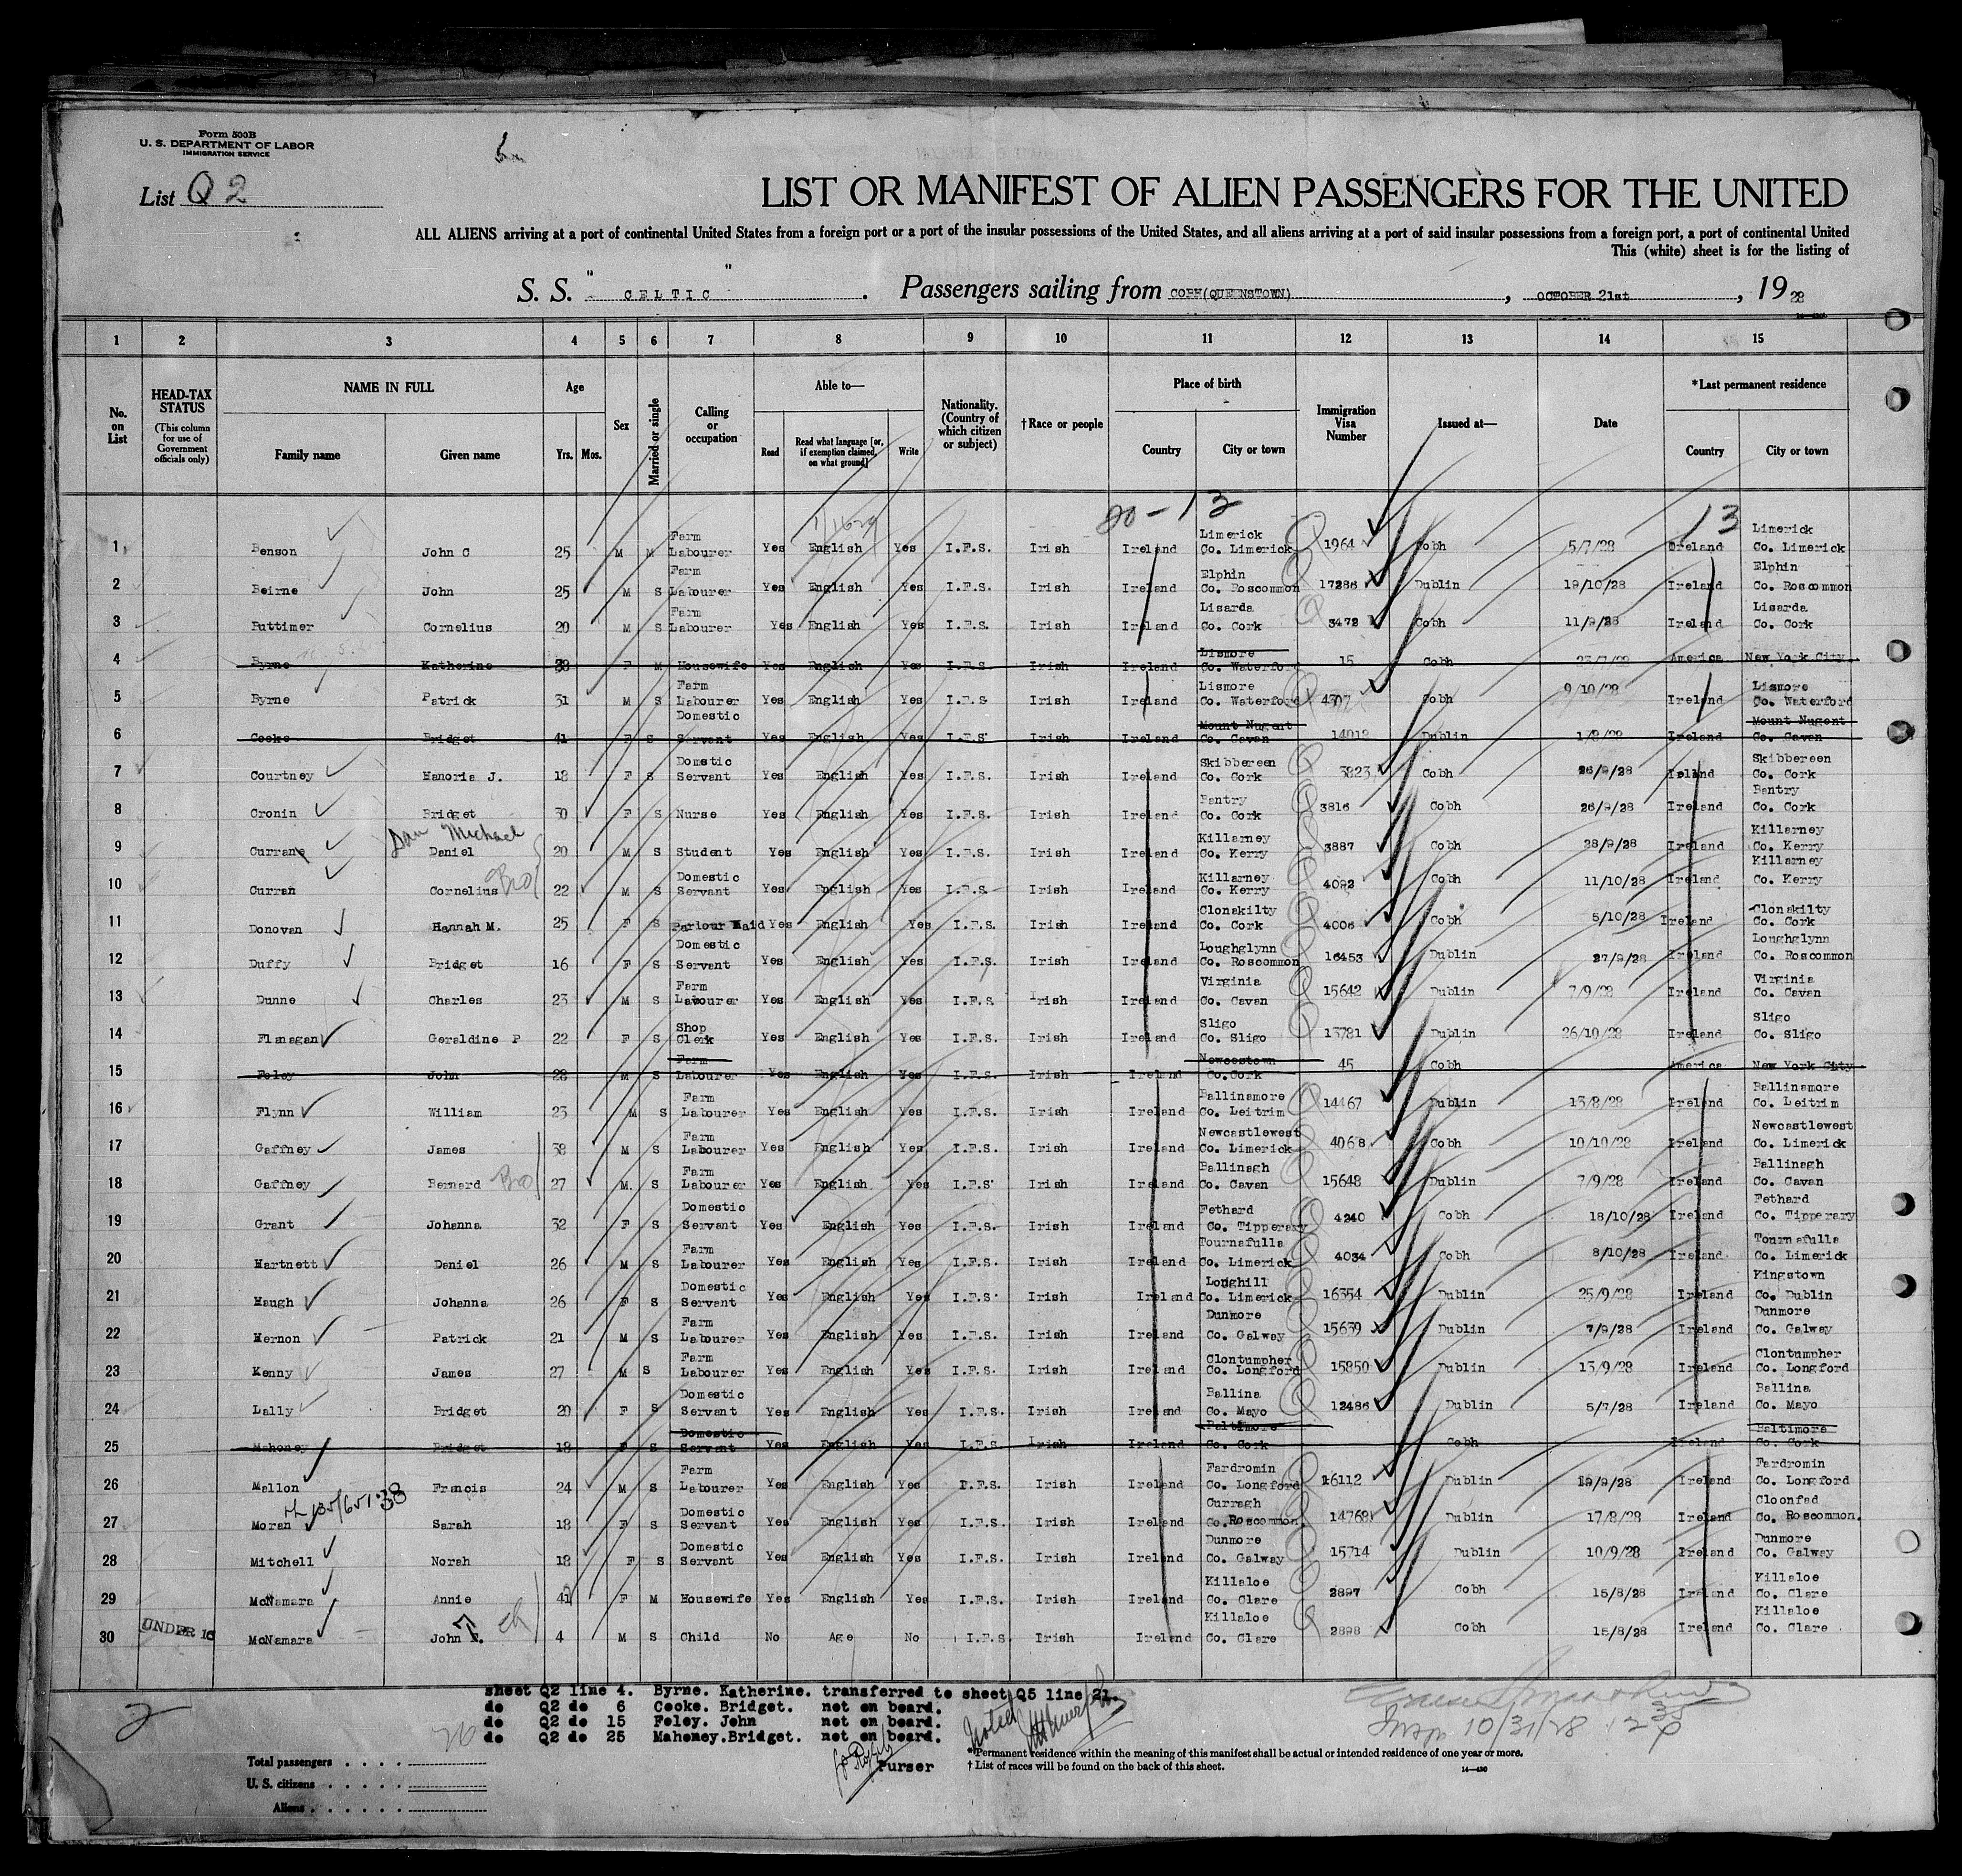 Form 500B
U. S. DEPARTMENT OF LABOR
IMMIGRATION SERVICE
List Q 2
LIST OR MANIFEST OF ALIEN PASSENGERS FOR THE UNITED
ALL ALIENS arriving at a port of continental United States from a foreign port or a port of the insular possessions of the United States, and all aliens arriving at a port of said insular possessions from a foreign port, a port of continental United
This (white) sheet is for the listing of
S. S. " CELTIC " . Passengers sailing from COBH(QUEENSTOWN) , OCTOBER 21st , 19 28
1 2 3 4 5 6 7 8 9 10 11 12 13 14 15
No. on List
HEAD-TAX STATUS (This column for use of Government officials only)
NAME IN FULL Family name Given name
Age Yrs. Mos.
Sex
Married or single
Calling or occupation
Able to— Read Read what language [or, if exemption claimed, on what ground] Write
Nationality. (Country of which citizen or subject)
†Race or people
Place of birth Country City or town
Immigration Visa Number
Issued at—
Date
*Last permanent residence Country City or town
20-13 13
1 Benson John C 25 M M Farm Labourer Yes English Yes I.F.S. Irish Ireland Limerick Co. Limerick 1964 Cobh 5/7/28 Ireland Limerick Co. Limerick
2 Beirne John 25 M S Farm Labourer Yes English Yes I.F.S. Irish Ireland Elphin Co. Roscommon 17286 Dublin 19/10/28 Ireland Elphin Co. Roscommon
3 Buttimer Cornelius 20 M S Farm Labourer Yes English Yes I.F.S. Irish Ireland Lisarda Co. Cork 3472 Cobh 11/9/28 Ireland Lisarda Co. Cork
4 Byrne Katherine 38 F M Housewife Yes English Yes I.F.S Irish Ireland Lismore Co. Waterford 15 Cobh 23/7/28 America New York City.
5 Byrne Patrick 31 M S Farm Labourer Yes English Yes I.F.S Irish Ireland Lismore Co. Waterford 4307 Cobh 9/10/28 Ireland Lismore Co. Waterford
6 Cooke Bridget 41 F S Domestic Servant Yes English Yes I.F.S' Irish Ireland Mount Nugent Co. Cavan 14012 Dublin 1/8/28 Ireland Mount Nugent Co. Cavan
7 Courtney Hanoria J. 18 F S Domestic Servant Yes English Yes I.F.S. Irish Ireland Skibbereen Co. Cork 3823 Cobh 26/9/28 Ireland Skibbereen Co. Cork
8 Cronin Bridget 30 F S Nurse Yes English Yes I.F.S. Irish Ireland Bantry Co. Cork 3816 Cobh 26/9/28 Ireland Bantry Co. Cork
Dan Michael
9 Currane Daniel 20 M S Student Yes English Yes I.F.S. Irish Ireland Killarney Co. Kerry 3887 Cobh 28/9/28 Ireland Killarney Co. Kerry
10 Curran Cornelius Bro 22 M S Domestic Servant Yes English Yes I.F.S. Irish Ireland Killarney Co. Kerry 4092 Cobh 11/10/28 Ireland Killarney Co. Kerry
11 Donovan Hannah M. 25 F S Parlour Maid Yes English Yes I.F.S. Irish Ireland Clonakilty Co. Cork 4006 Cobh 5/10/28 Ireland Clonakilty Co. Cork
12 Duffy Bridget 16 F S Domestic Servant Yes English Yes I.F.S. Irish Ireland Loughglynn Co. Roscommon 16453 Dublin 27/9/28 Ireland Loughglynn Co. Roscommon
13 Dunne Charles 23 M S Farm Labourer Yes English Yes I.F.S Irish Ireland Virginia Co. Cavan 15642 Dublin 7/9/28 Ireland Virginia Co. Cavan
14 Flanagan Geraldine P 22 F S Shop Clerk Yes English Yes I.F.S. Irish Ireland Sligo Co. Sligo 13781 Dublin 26/10/28 Ireland Sligo Co. Sligo
15 Foley John 28 M S Farm Labourer Yes English Yes I.F.S. Irish Ireland Newcestown Co.Cork 45 Cobh America New York City
16 Flynn William 23 M S Farm Labourer Yes English Yes I.F.S. Irish Ireland Ballinamore Co. Leitrim 14467 Dublin 13/8/28 Ireland Ballinamore Co. Leitrim
17 Gaffney James 38 M S Farm Labourer Yes English Yes I.F.S. Irish Ireland Newcastlewest Co. Limerick 4068 Cobh 10/10/28 Ireland Newcastlewest Co. Limerick
18 Gaffney Bernard Bro 27 M. S Farm Labourer Yes English Yes I.F.S' Irish Ireland Ballinagh Co. Cavan 15648 Dublin 7/9/28 Ireland Ballinagh Co. Cavan
19 Grant Johanna 32 F S Domestic Servant Yes English Yes I.F.S. Irish Ireland Fethard Co. Tipperary 4240 Cobh 18/10/28 Ireland Fethard Co. Tipperary
20 Hartnett Daniel 26 M S Farm Labourer Yes English Yes I.F.S. Irish Ireland Tournafulla Co. Limerick 4034 Cobh 8/10/28 Ireland Tournafulla Co. Limerick
21 Haugh Johanna 26 F S Domestic Servant Yes English Yes I.F.S. Irish Ireland Loughill Co. Limerick 16354 Dublin 25/9/28 Ireland Kingstown Co. Dublin
22 Hernon Patrick 21 M S Farm Labourer Yes English Yes I.F.S. Irish Ireland Dunmore Co. Galway 15639 Dublin 7/9/28 Ireland Dunmore Co. Galway
23 Kenny James 27 M S Farm Labourer Yes English Yes I.F.S. Irish Ireland Clontumpher Co. Longford 15850 Dublin 13/9/28 Ireland Clontumpher Co. Longford
24 Lally Bridget 20 F S Domestic Servant Yes English Yes I.F.S. Irish Ireland Ballina Co. Mayo 12486 Dublin 5/7/28 Ireland Ballina Co. Mayo
25 Mahoney Bridget 18 F S Domestic Servant Yes English Yes I.F.S Irish Ireland Baltimore Co. Cork Cobh Ireland Baltimore Co. Cork
26 Mallon Francis 24 M S Farm Labourer Yes English Yes I.F.S. Irish Ireland Fardromin Co. Longford 16112 Dublin 19/9/28 Ireland Fardromin Co. Longford
27 Moran Sarah 18 F S Domestic Servant Yes English Yes I.F.S. Irish Ireland Curragh Co. Roscommon. 14768 Dublin 17/8/28 Ireland Cloonfad Co. Roscommon.
28 Mitchell Norah 18 F S Domestic Servant Yes English Yes I.F.S. Irish Ireland Dunmore Co. Galway 15714 Dublin 10/9/28 Ireland Dunmore Co. Galway
29 McNamara Annie 41 F M Housewife Yes English Yes I.F.S. Irish Ireland Killaloe Co. Clare 2897 Cobh 15/8/28 Ireland Killaloe Co. Clare
30 UNDER 16 McNamara John F. ch 4 M S Child No Age No I.F.S Irish Ireland Killaloe Co. Clare 2898 Cobh 15/8/28 Ireland Killaloe Co. Clare
sheet Q2 line 4. Byrne. Katherine. transferred to sheet Q5 line 21.
do Q2 do 6 Cooke. Bridget. not on board.
do Q2 do 15 Foley. John not on board.
do Q2 do 25 Mahoney.Bridget. not on board.
2
26
Noted
Purser
Insp 10/31/28
Total passengers . . . .
U. S. citizens . . . . .
Aliens . . . . . .
*Permanent residence within the meaning of this manifest shall be actual or intended residence of one year or more.
† List of races will be found on the back of this sheet.
14—430